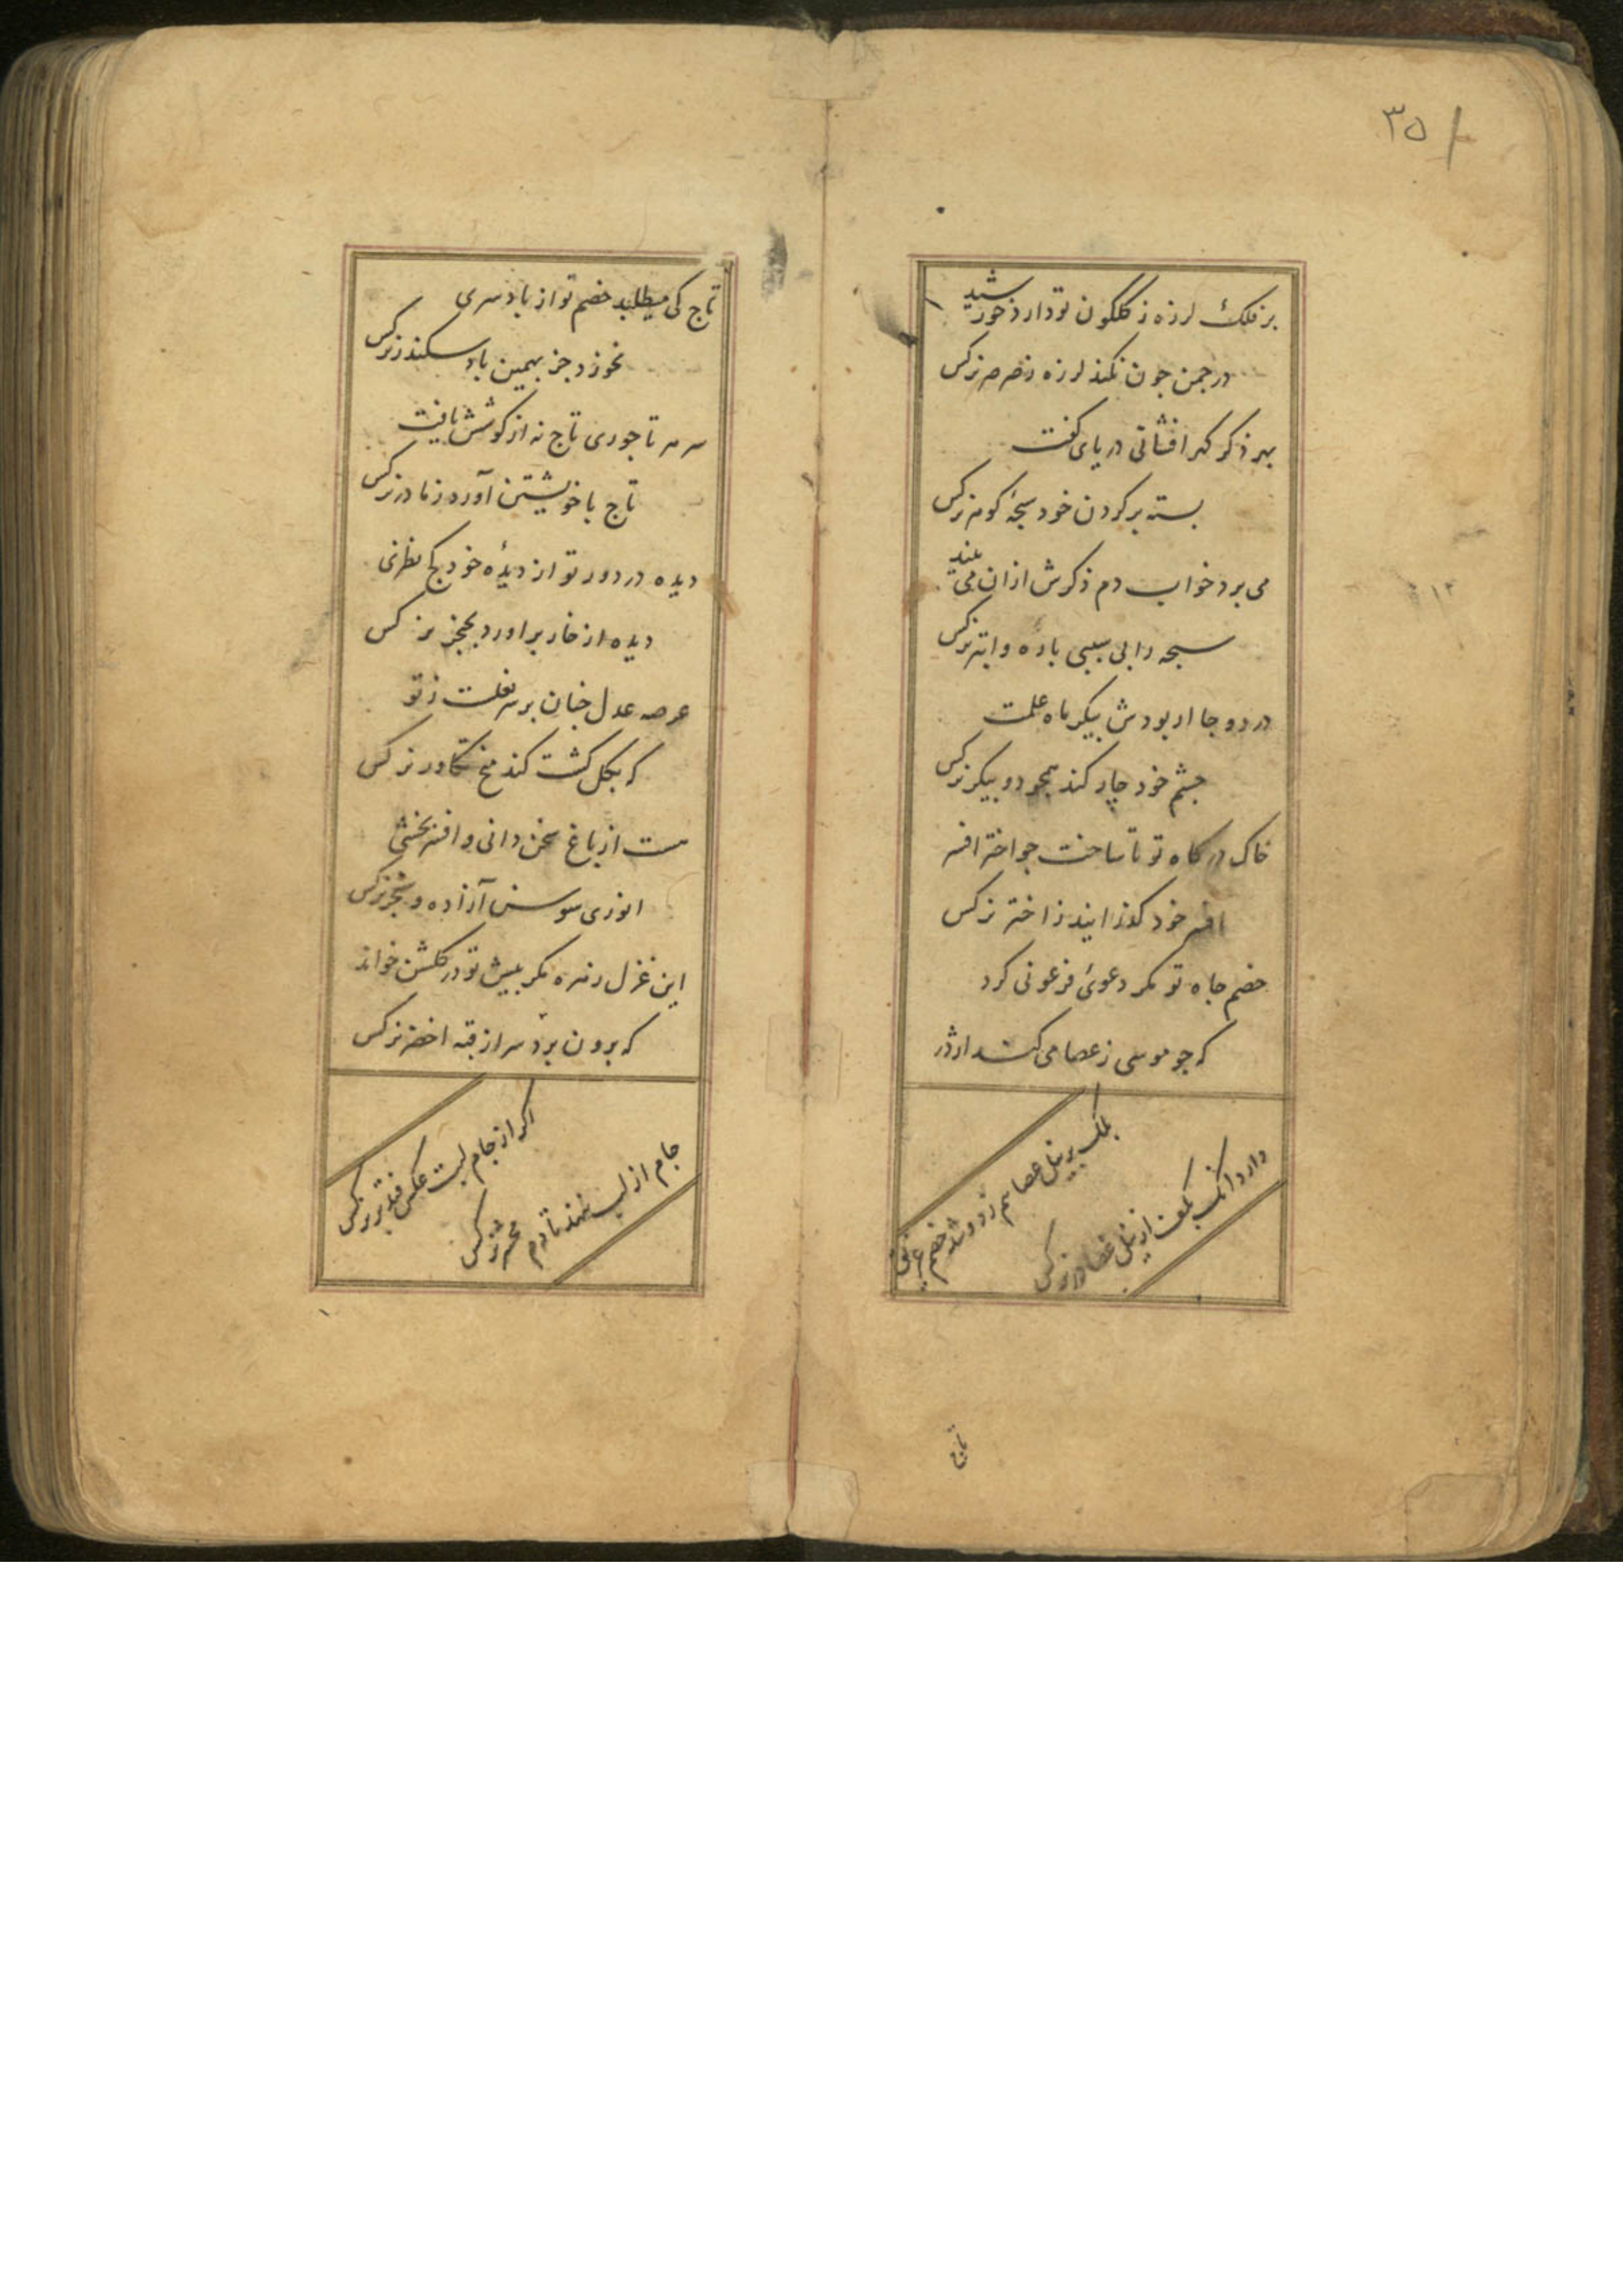 ۳۵
بر فلک لرزه ز گلگون تو دارد خورشید
در جمن جون نکند لرزه ز صرصر نرکس
بهر ذکر کهر افشانی دریای کفت
بسته بر کردن خود سبحهٔ کوهر نرکس
می برد خواب دم ذکرش ازان می
سبحه را بی سببی باره و ابتر نرکس
در دوجا ار بودش بیکر ماه علمت
جشم خود چار کند همجو دو بیکر نرکس
خاک درکاه تو تا ساخت جو اختر افسر
افسر خود کذرانید ز اختر نرکس
خصم جاه تو مکر دعوئ فرعونی کرد
که جو موسی ز عصا می کشد اژدر
بر نیل عصا هم زد و شد خصم غریق
دارد آنک بکف از نیل عصا در نرکس
تاج
تاج کی میطلبد خصم تو از باد سری
نخورد جز بهمین باد سکندر نرکس
سرمه تاجوری تاج نه از کوشش یافت
تاج با خویشتن آورد ز مادر نرکس
دیده در دور تو از دیدهٔ خود کج نظری
دیده از خار براورد بخنجر نرکس
عرصه عدل جنان برسر تو
که بکل کشت کند تکاور نرکس
ست از باغ سخن دانی و افسر بخشی
انوری سوسن آزاده و سنجر نرکس
این غزل زمزمه مکر بیش تو در کلشن خواند
که برون برد سر از قبه اخضر نرکس
اکر از جام لبت عکس فتد بر نرکس
جام از لب ننهد تا دم محشر نرکس